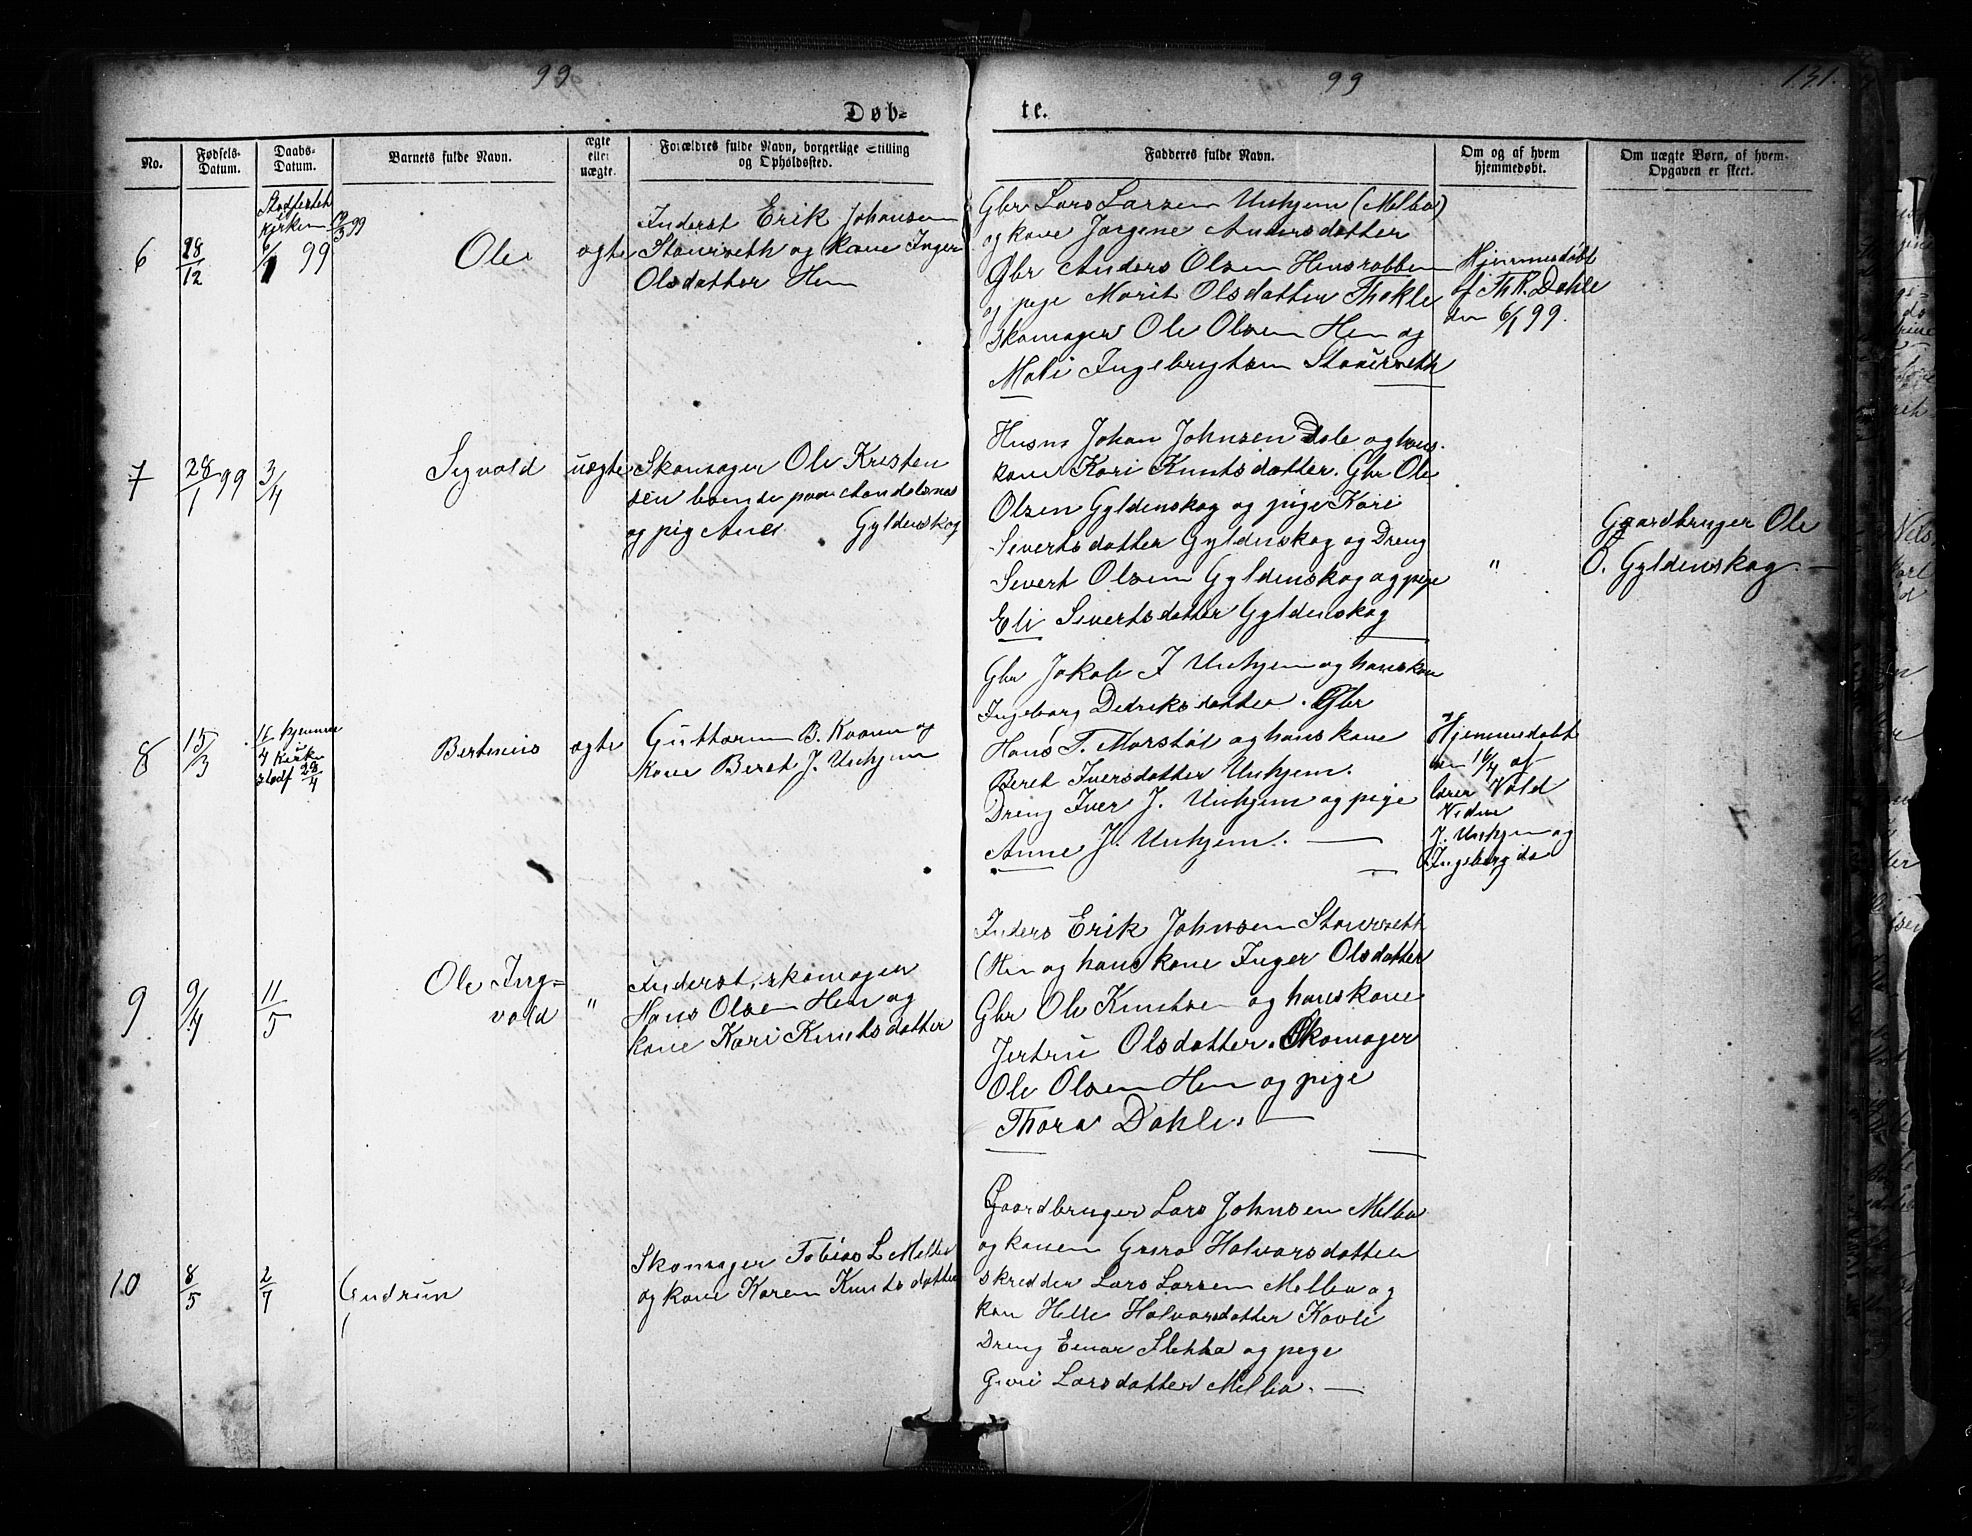 99
99
131.
Døb-
te.
No.
Fødsels-
Datum.
Daabs-
Datum.
Barnets fulde Navn.
ægte
eller
uægte.
Forældres fulde Navn, borgerlige Stilling
og Opholdssted.
Fadderes fulde Navn.
Om og af hvem
hjemmedøbt.
Om uægte Børn, af hvem
Opgaven er skeet.
6
28/12
Stadfestet
Kirken 12/3 99
6/1 99
Ole
ægte
Inderst Erik Johansen
Staurseth og kone Inger
Olsdatter Hen
Gbr Lars Larsen Unhjem (Melbø)
og kone Jørgine Andersdatter
Gbr Anders Olsen Hensrabben
og pige Marit Olsdatter Thokle
Skomager Ole Olsen Hen og
Mali Ingebrigtsen Staurseth
Hjemmedøbt
af Th R. Dahle
den 6/1 99.
7
28/1 99
3/4
Sigvald
uægte
Skomager Ole Kristen
sen boende paa Aandalsnæs
og pig Ane Gyldenskog
Husm Johan Johnsen Dale og hans
kone Kari Knutsdatter. Gbr Ole
Olsen Gyldenskog og pige Kari
Sivertsdatter Gyldenskog og Dreng
Sivert Olsen Gyldenskog og pige
Eli Sivertsdatter Gyldenskog
"
Gaardbruger Ole
O. Gyldenskog.
8
15/3
16 hjemme
4 Kirke
stadf 23/4
Bertinius
ægte
Guttorm B. Kaarn og
kone Beret J. Unhjem
Gbr Jakob I Unhjem og hans kone
Ingeborg Dedriksdatter. Gbr
Hans T. Marstøl og hans kone
Beret Iversdatter Unhjem.
Dreng Iver J. Unhjem og pige
Anne J. Unhjem.
Hjemmedøbt
den 16/4 af
lærer Vold
Vidne
J. Unhjem og
Ingeborg do
9
9/4
11/5
Ole Ing-
vald
"
Inderst, skomager
Hans Olsen Hen og
kone Kari Knutsdatter
Inders Erik Johnsen Staurseth
(Hen og hans kone Inger Olsdatter
Gbr Ole Knutsen og hans kone
Jertru Olsdatter. Skomager
Ole Olsen Hen og pige
Thora Dahle.
10
8/5
2/7
Gudrun
Skomager Tobias L Melbø
og kone Karen Knutsdatter
Gaardbruger Lars Johnsen Melbø
og konen Guro Halvorsdatter
skredder Lars Larsen Melbø og
kon Helle Halvorsdatter Kavli
Dreng Einar Flekka og pige
Guri Larsdatter Melbø.